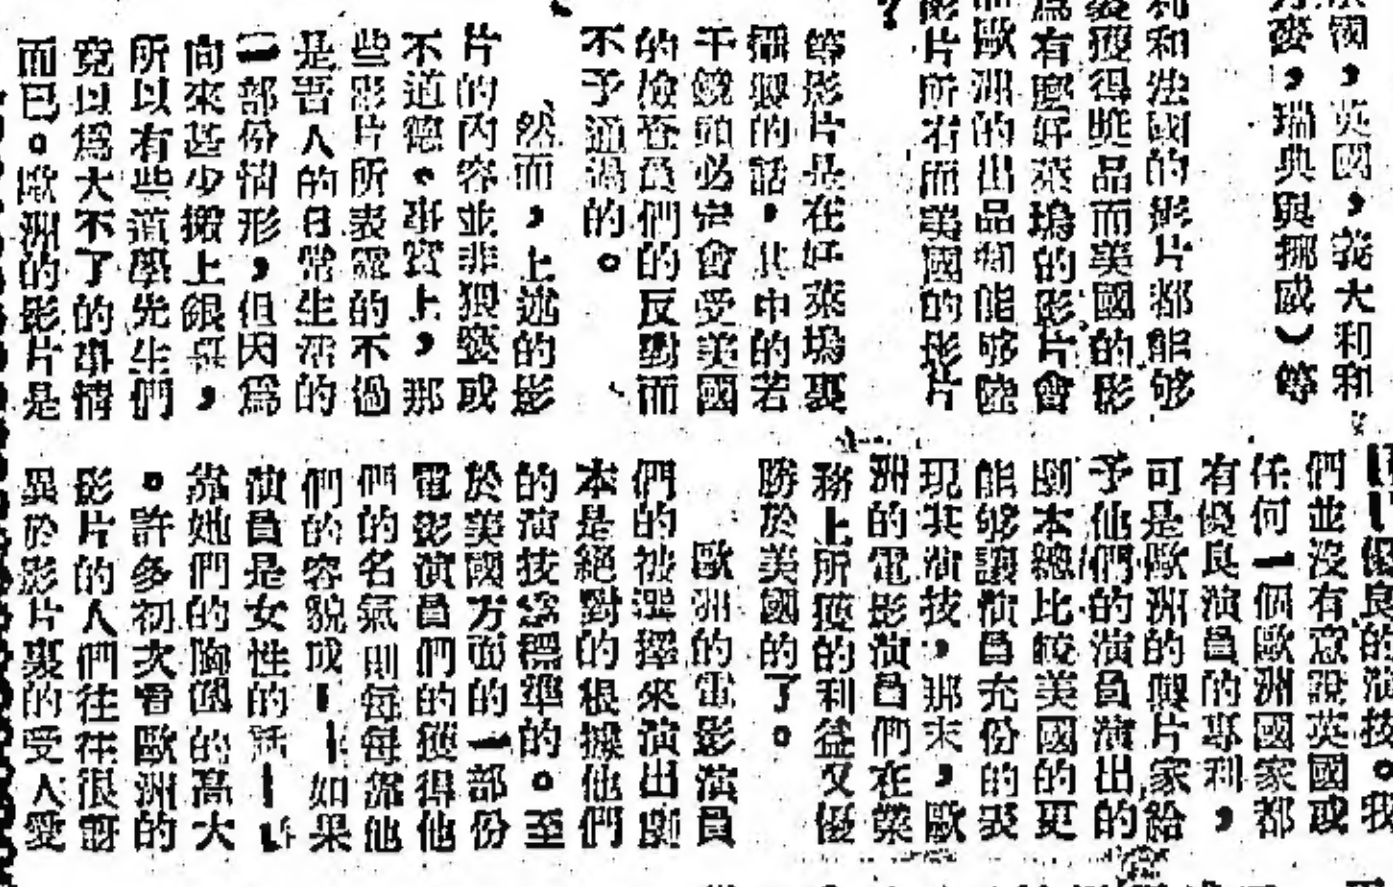 國，英國，義大利和
麥，瑞典與挪威）等
利和法國的影片都能够
獲得獎品而美國的影
爲有麼好萊塢的影片會
歐洲的出品却能够陸
影片所沒有而美國的影片
？
等影片是在好萊塢裏
攝製的話，其中的若
干鏡頭必定會受美國
的檢查員們的反對而
不予通過的。
然而，上述的影
片的內容並非猥褻或
不道德。事實上，那
些影片所表露的不過
是吾人的日常生活的
一部份情形，但因爲
向來甚少搬上銀幕，
所以有些道學先生們
竟以爲大不了的事情
而已。歐洲的影片是
優良的演技。我
們並沒有意說英國或
任何一個歐洲國家都
有優良演員的專利，
可是歐洲的製片家給
予他們的演員演出的
劇本總比較美國的更
能够讓演員充份的表
現其演技，那末，歐
洲的電影演員們在業
務上所獲的利益又優
勝於美國的了。
歐洲的電影演員
們的被選擇來演出劇
本是絕對的根據他們
的演技爲標準的。至
於美國方面的一部份
電影演員們的獲得他
們的名氣則每每靠他
們的容貌或——如果
演員是女性的話——
靠她們的胸圍的高大
。許多初次看歐洲的
影片的人們往往很訝
異於影片裏的受人愛